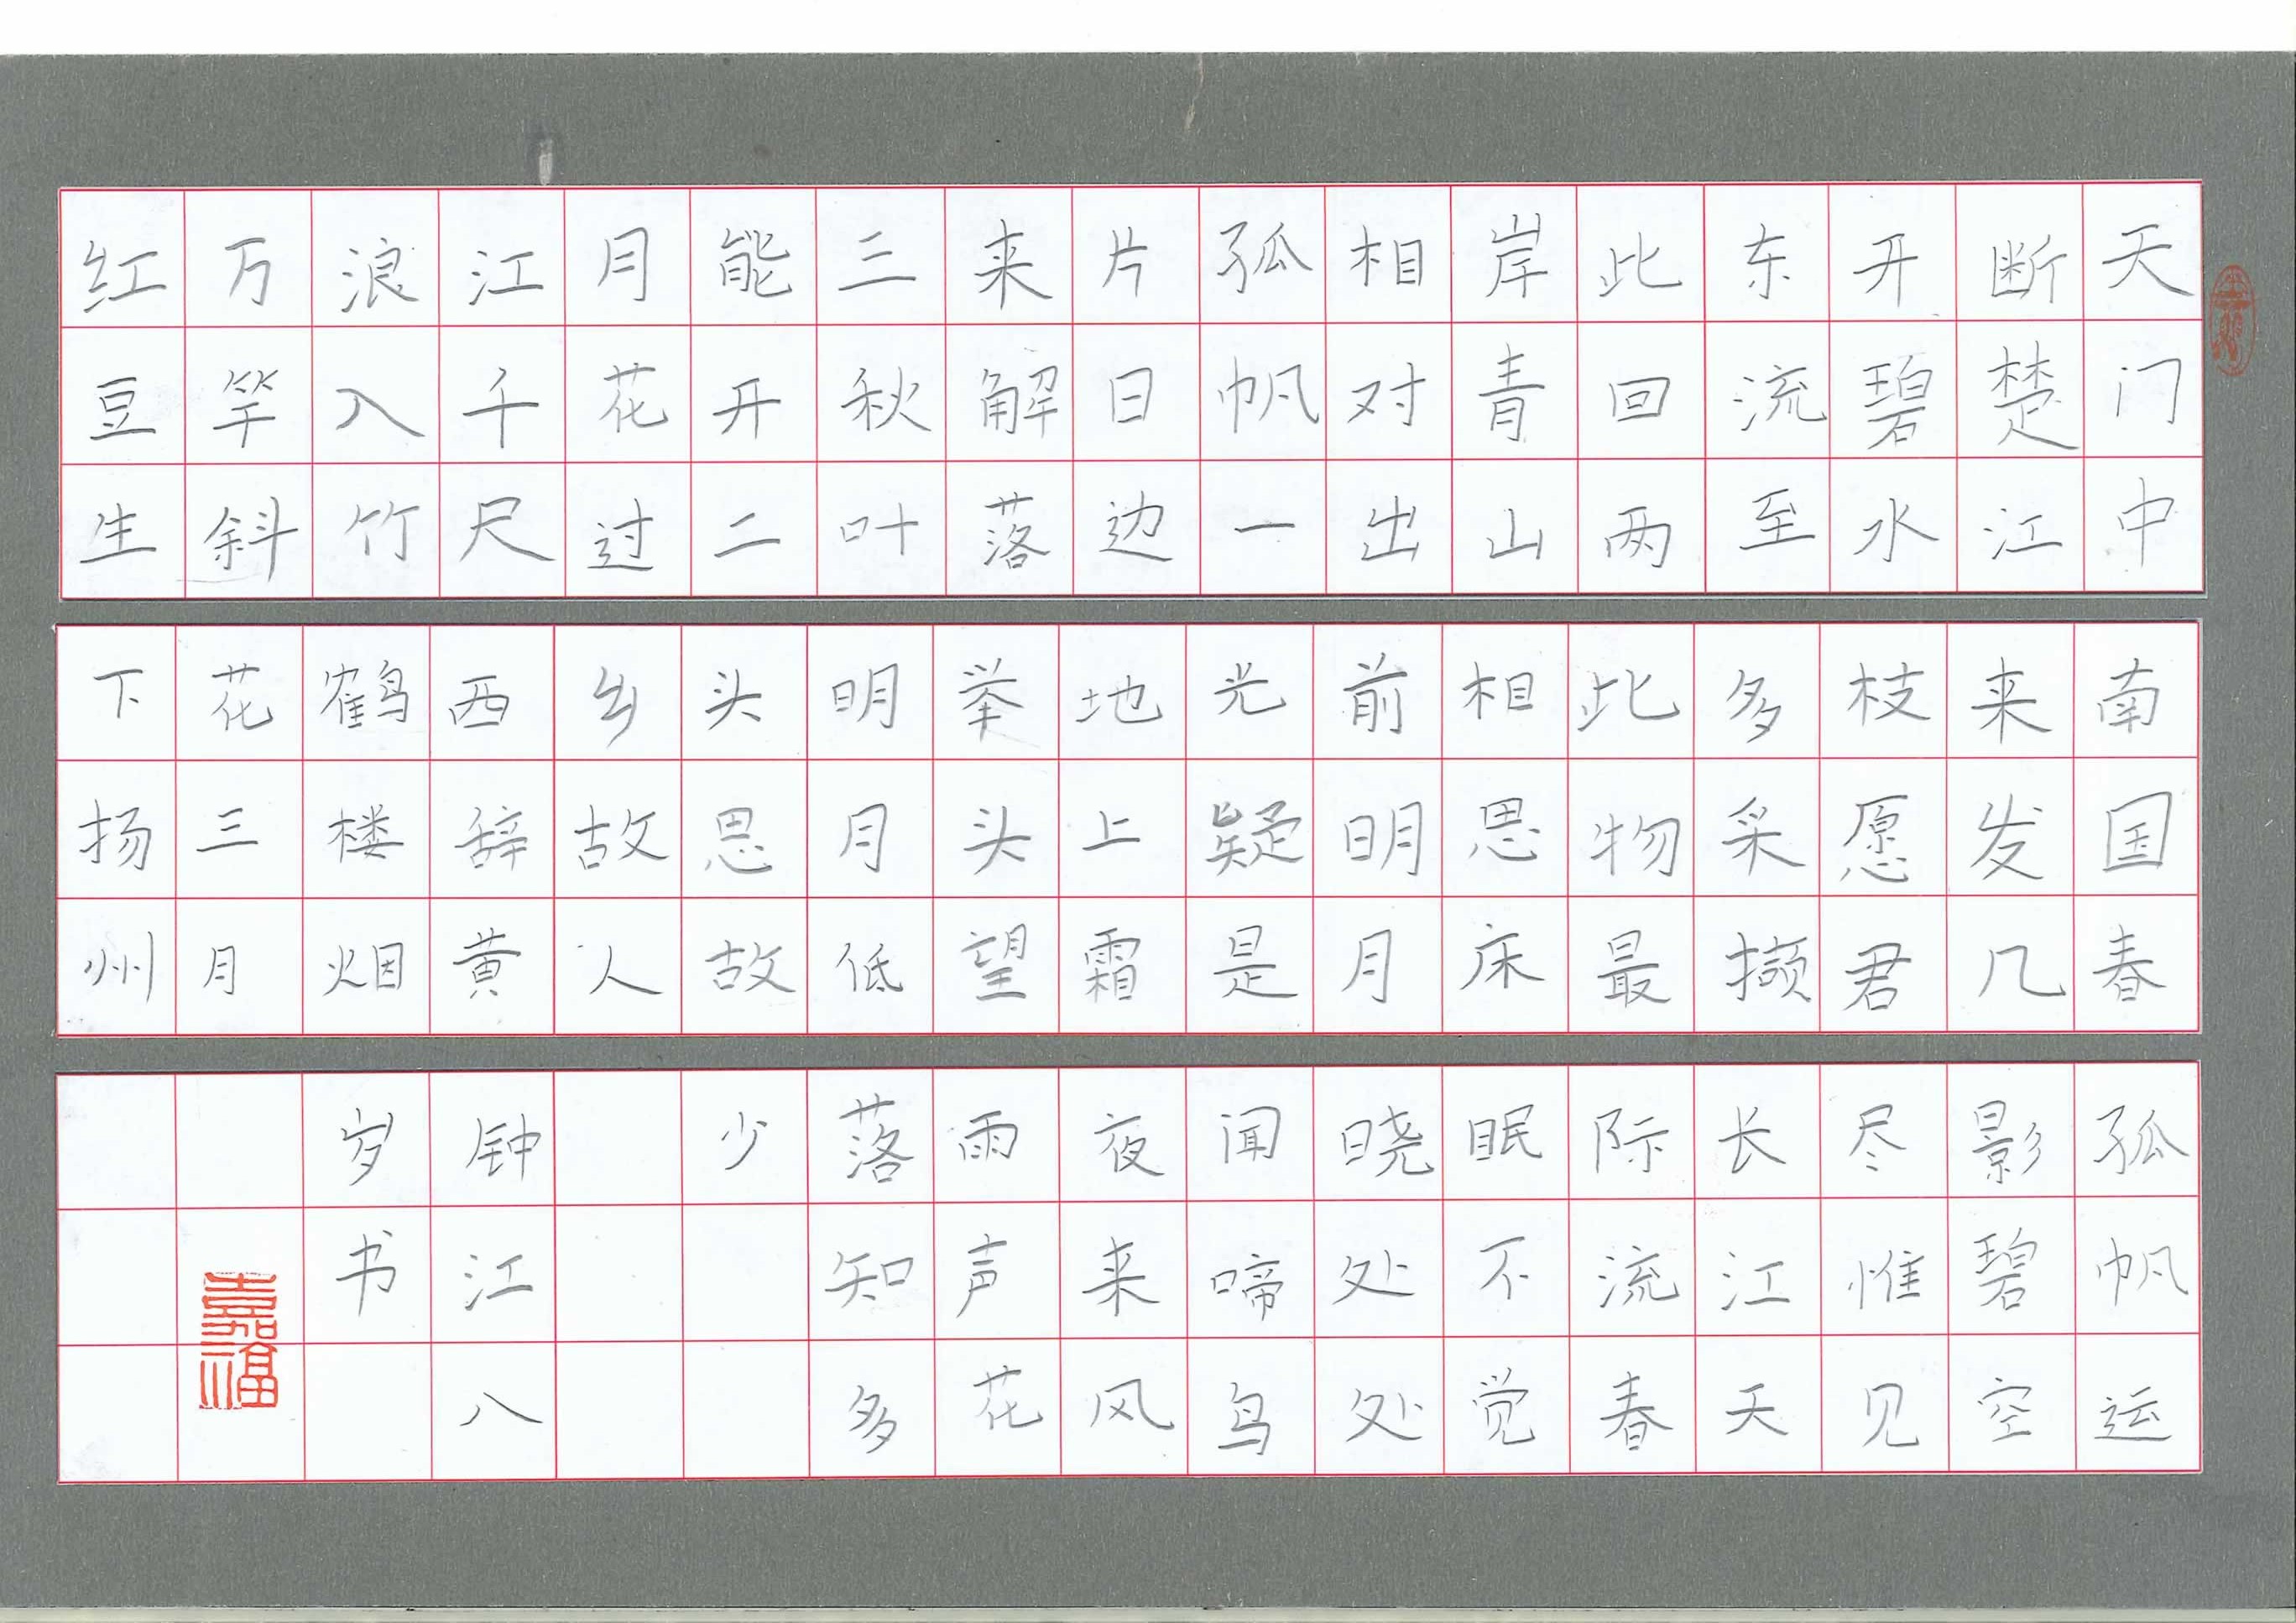 天门中
断楚江
开碧水
东流至
此回两
岸青山
相对出
孤帆一
片日边
来解落
三秋叶
能开二
月花过
江千尺
浪入竹
万竿斜
红豆生
南国春
来发几
枝愿君
多采撷
此物最
相思床
前明月
光疑是
地上霜
举头望
明月低
头思故
乡故人
西辞黄
鹤楼烟
花三月
下扬州
孤帆运
影碧空
尽惟见
长江天
际流春
眠不觉
晓处处
闻啼鸟
夜来风
雨声花
落知多
少
钟江八
岁书
嘉福